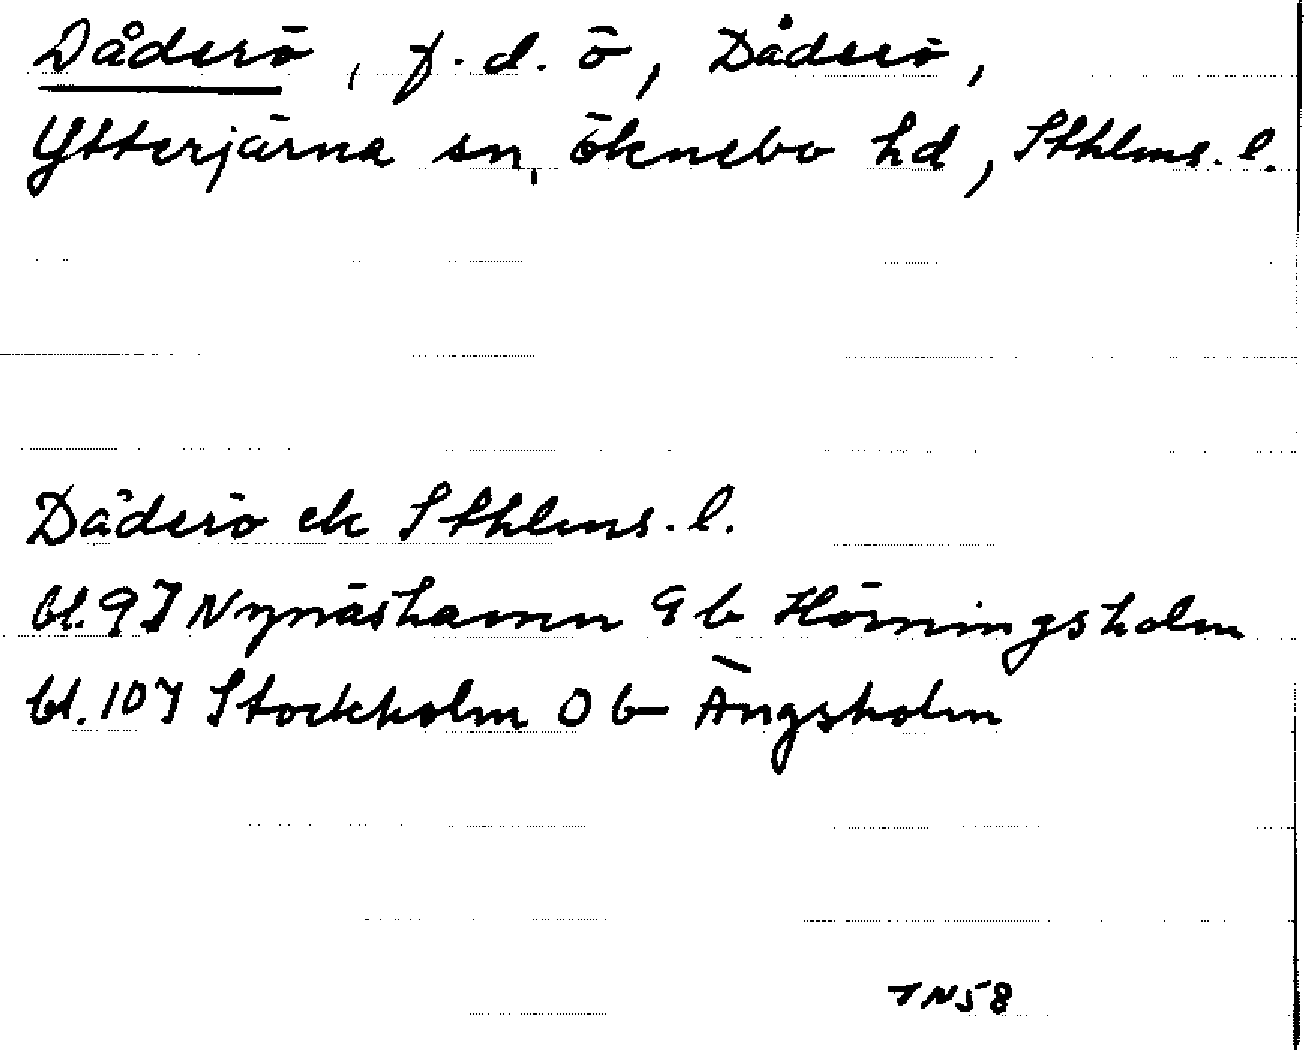 Dåderö, f.d. ö, Dåderö,
Ytterjärna sn, Öknebo hd, Sthlms. l.
Dåderö ek Sthlms. l.
bl. 9I Nynäshamn 9b Hörningsholm
bl. 10I Stockholm 0b Ängsholm
TN58